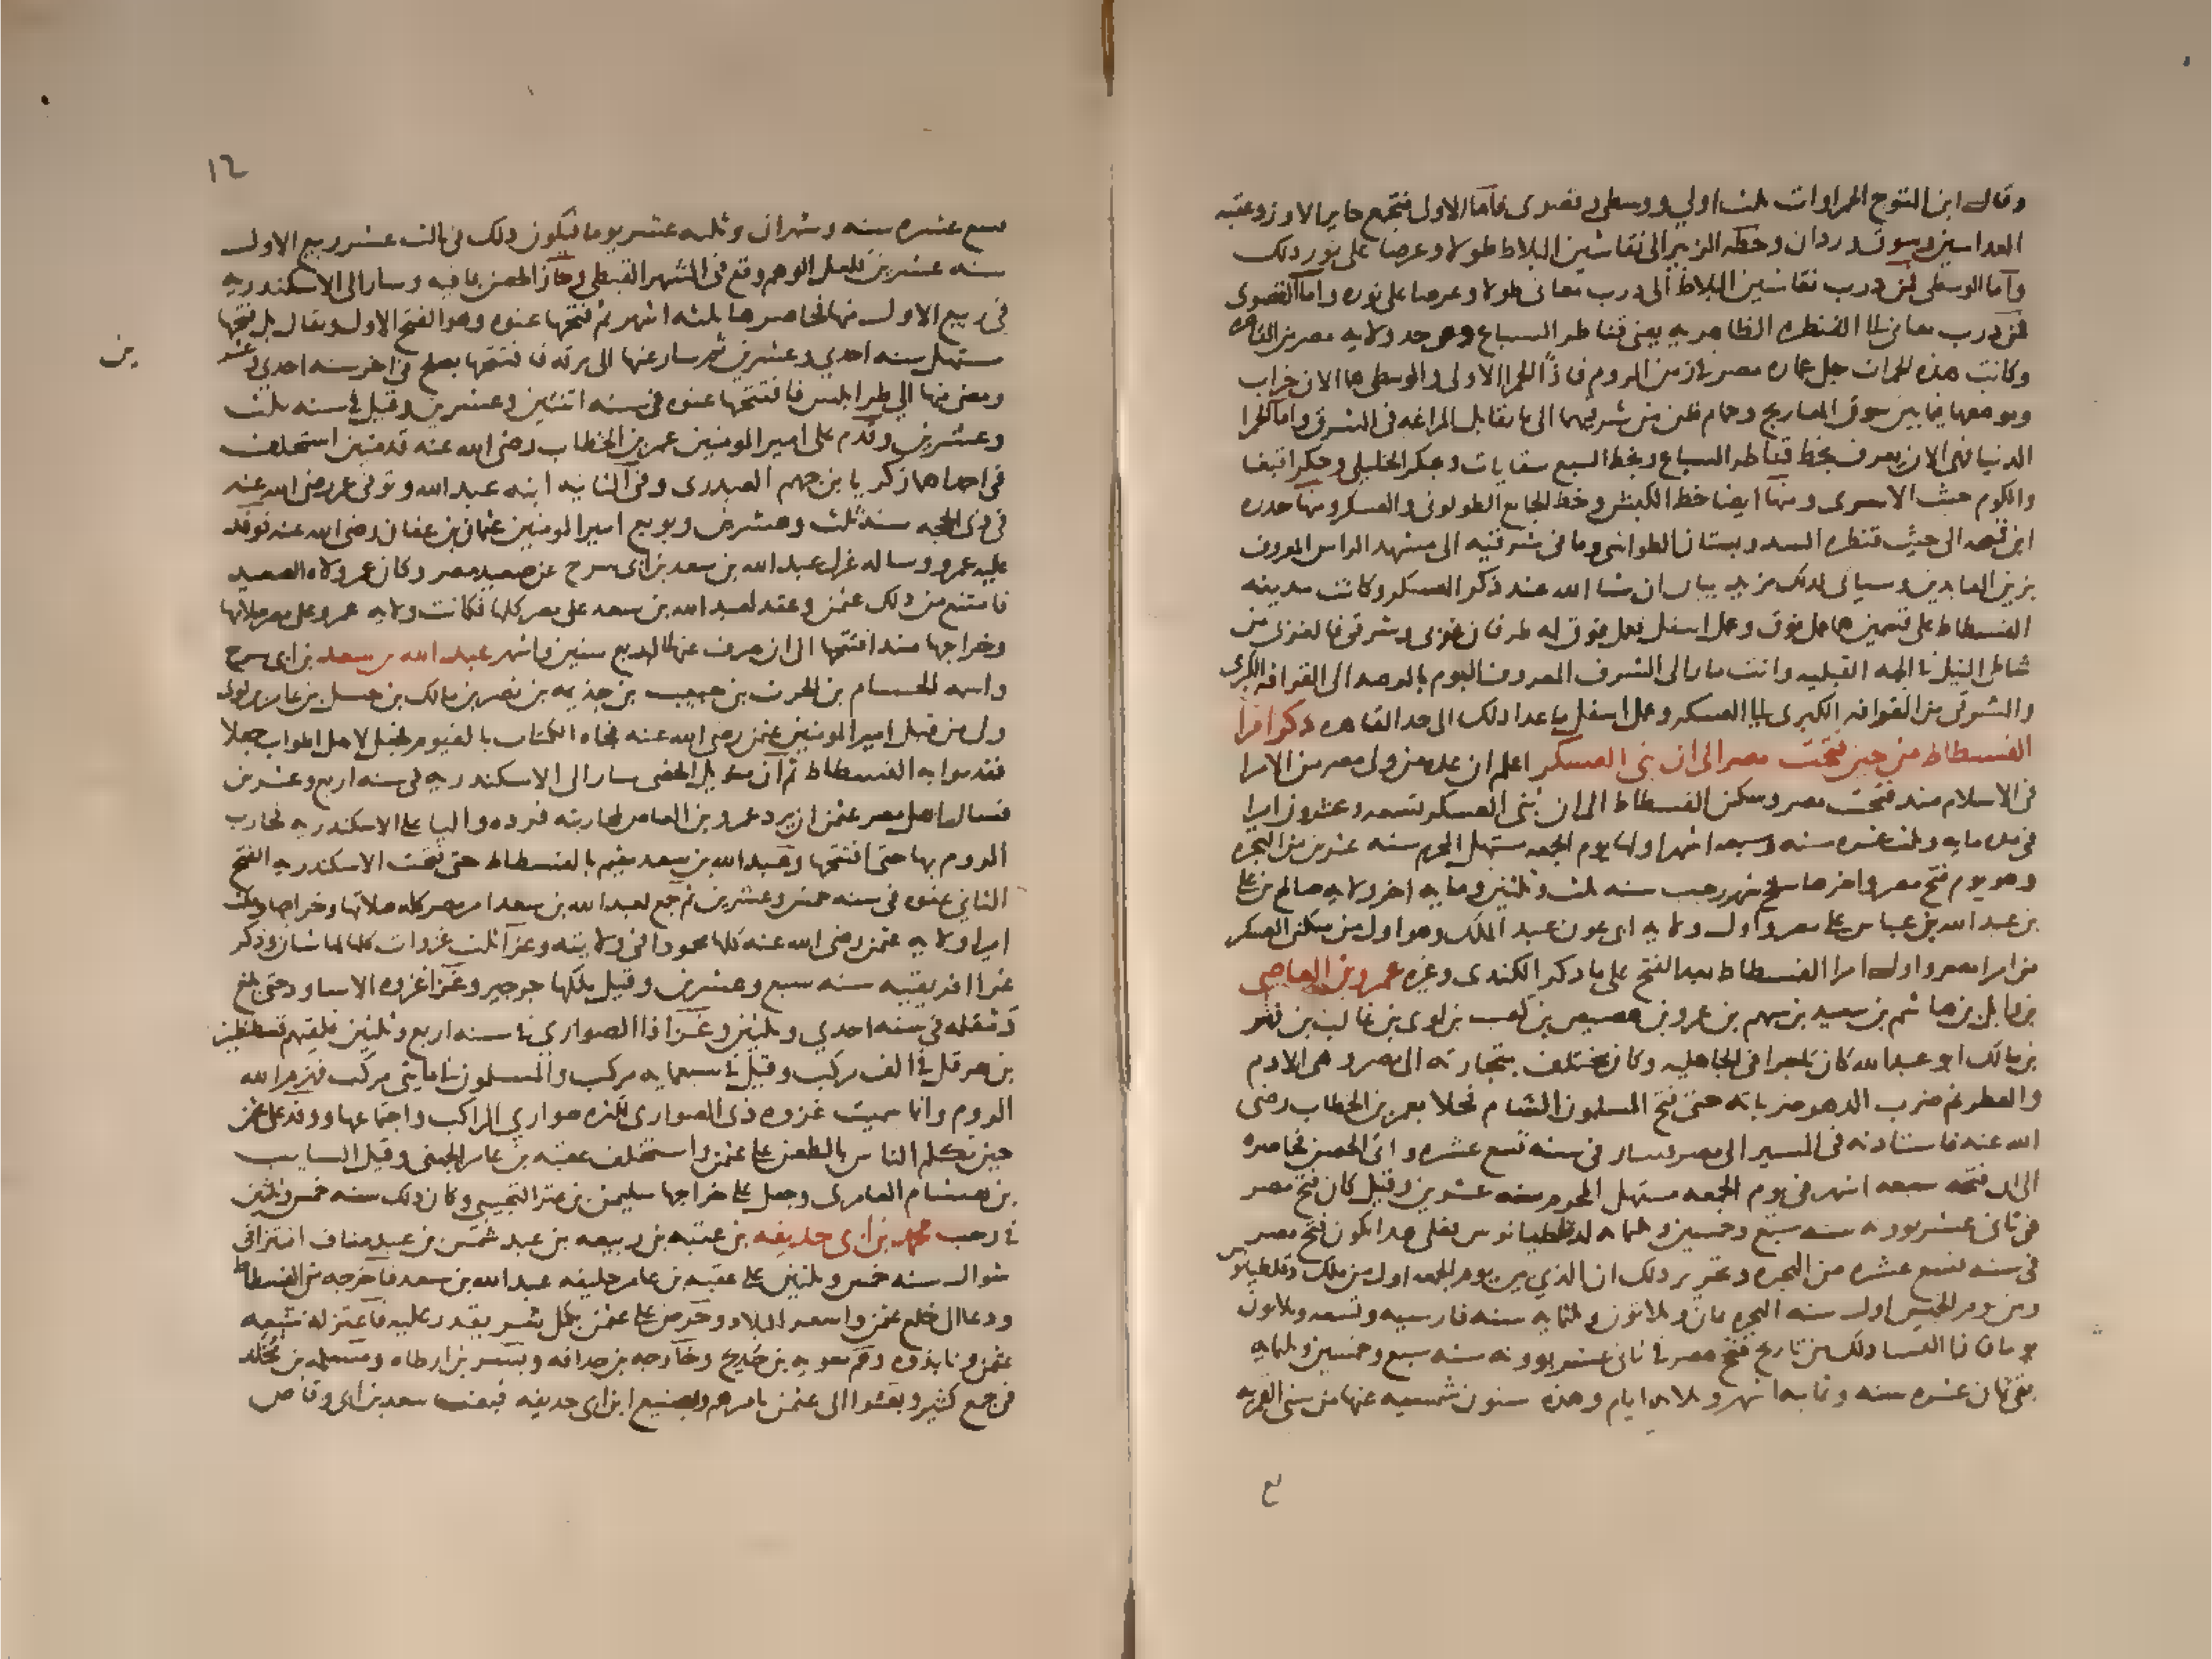 وقال ابن المتوج الحمراوات ثلث اولي ووسطي وقصوى فاما الاولى فتجمع جابر الاوز وعقبة
العداسين وسوق وردان وخطه الزبير الى نقاشين البلاط طولا وعرضا على قدر ذلك
واما الوسطى فمن درب نقاشين البلاط الى درب معانى طولا وعرضا على قدره واما القصوى
فمن درب معانى الى القنطره الظاهريه يعنى قناطر السباع وهى حد ولايه مصر من القاهره
وكانت هذه الحمرات جل عماره مصر فى زمن الروم فاذا الحمرا الاولى والوسطى هما الان خراب
وموضعها فيما بين سوق المعاريج وحمام طن من شرقيهما الى ما يقابل المراغه فى الشرق واما الحمرا
الدنيا فهى الان تعرف بخط قناطر السباع وبخط السبع سقايات وبحكر الخليلى وحكر اقبغا
والكوم حيث الاسرى ومنها ايضا خط الكبش وخط الجامع الطولونى والعسكر ومنها حدره
ابن قميحه الى حيث قنطره السد وبستان الطواشى وما فى شرقيه الى مشهد الراس المعروف
بزين العابدين وسياتى لذلك مزيد بيان ان شا الله عند ذكر العسكر وكانت مدينه
الفسطاط على قسمين هما عمل فوق وعمل اسفل فعمل فوق له طرفان غربى وشرقى فالغربى من
شاطى النيل فى الجهه القبليه وانت مار الى الشرف المعروف اليوم بالرصد الى القرافه الكبرى
والشرقى من القرافه الكبرى الى العسكر وعمل اسفل ما عدا ذلك الى حد القاهره ذكر امرا
الفسطاط من حين فتحت مصر الى ان بنى العسكر اعلم ان عده من ولى مصر من الامرا
فى الاسلام منذ فتحت مصر وسكن الفسطاط الى ان بنى العسكر تسعه وعشرون اميرا
فى مده مايه وثلث عشره سنه وسبعه اشهر اولها يوم الجمعه مستهل المحرم سنه عشرين من الهجره
وهو يوم فتح مصر واخرها سلخ شهر رجب سنه ثلث وثلثين ومايه اخر ولايه صالح بن على
بن عبد الله بن عباس على مصر واول ولايه ابى عون عبد الملك وهو اول من سكن العسكر
من امرا مصر واول امرا الفسطاط بعد الفتح على ما ذكر الكندى وغيره عمرو بن العاصى
بن وايل بن هاشم بن سعيد بن سهم بن عمرو بن هصيص بن كعب بن لوى بن غالب بن فهر
بن مالك ابو عبد الله كان تاجرا فى الجاهليه وكان يختلف بتجارته الى مصر وهى الادم
والعطر ثم ضرب الدهر ضرباته حتى فتح المسلمون الشام فخلا بعمر بن الخطاب رضى
الله عنه فاستاذنه فى المسير الى مصر فسار فى سنه تسع عشره واتى الحصن فحاصره
الى ان فتحه سبعه اشهر فى يوم الجمعه مستهل المحرم سنه عشرين وقيل كان فتح مصر
فى ثانى عشر بوونه سنه سبع وخمسين وثلثمايه لدقلطيانوس فعلى هذا يكون فتح مصر
فى سنه تسع عشره من الهجره وتحرير ذلك ان الذى بين يوم الجمعه اول من ملك دقلطيانوس
وبين يوم الخميس اول سنه الهجره ثمان وثلاثون وثلثمايه سنه فارسيه وتسعه وثلاثون
يوما فاذا القينا ذلك من تاريخ فتح مصر فى ثانى عشر بوونه سنه سبع وخمسين وثلثمايه
بقى ثمان عشره سنه وثمانيه اشهر وثلاثه ايام وهذه سنون شمسيه عنها من سنى القمريه
ع
١٢
تسع عشره سنه وشهران وثلثه عشر يوما فيكون ذلك فى ثالث عشر ربيع الاول
سنه عشرين فلعل الوهم وقع فى الشهر القبطى وحاز الحصن بما فيه وسار الى الاسكندريه
فى ربيع الاول منها فحاصرها ثلثه اشهر ثم فتحها عنوه وهو الفتح الاول ويقال بل فتحها
مستهل سنه احدى وعشرين ثم سار عنها الى برقه فافتتحها بصلح فى اخر سنه احدى وعشر
ين
ومضى منها الى طرابلس فافتتحها عنوه فى سنه اثنتين وعشرين وقيل فى سنه ثلث
وعشرين وقدم على امير المومنين عمر بن الخطاب رضى الله عنه قدمتين استخلف
فى احداهما زكريا بن جهم العبدرى وفى الثانيه ابنه عبد الله وتوفى عمر رضى الله عنه
فى ذى الحجه سنه ثلث وعشرين وبويع امير المومنين عثمان بن عفان رضى الله عنه فوفد
عليه عمرو وساله عزل عبد الله بن سعد بن ابى سرح عن صعيد مصر وكان عمر ولاه الصعيد
فامتنع من ذلك عثمن وعقد لعبد الله بن سعد على مصر كلها فكانت ولايه عمرو على مصر صلاتها
وخراجها منذ افتتحها الى ان صرف عنها اربع سنين واشهر عبد الله بن سعد بن ابى سرح
واسمه الحسام بن الحرث بن حبيب بن جذيمه بن نصر بن مالك بن حسل بن عامر بن لوى
ولى من قبل امير المومنين عثمن رضى الله عنه فجاه الكتاب بالفيوم فجعل لاهل اطواب جعلا
فقدموا به الفسطاط ثم ان منويل الخصى سار الى الاسكندريه فى سنه اربع وعشرين
فسال اهل مصر عثمن ان يرد عمرو بن العاص لمحاربته فرده واليا على الاسكندريه فحارب
الروم بها حتى افتتحها وعبد الله بن سعد مقيم بالفسطاط حتى فتحت الاسكندريه الفتح
الثانى عنوه فى سنه خمس وعشرين ثم جمع لعبد الله بن سعد امر مصر كله صلاتها وخراجها ومكث
اميرا ولايه عثمن رضى الله عنه كلها محمودا فى ولايته وغزا ثلث غزوات كلها لها شان وذكر
غزا افريقيه سنه سبع وعشرين وقيل ملكها جرجير وغزا غزوه الاساود حتى بلغ
دنقله فى سنه احدى وثلثين وغزا ذا الصوارى فى سنه اربع وثلثين فلقيهم قسطنطين
بن هرقل فى الف مركب وقيل فى سبعمايه مركب والمسلمون فى مايتى مركب فهزم الله
الروم وانما سميت غزوه ذى الصوارى لكثره صوارى المراكب واجتماعها ووفد على عثمن
حين تكلم الناس بالطعن على عثمن واستخلف عقبه بن عامر الجهنى وقيل السايب
بن هشام العامرى وجعل على خراجها سليمن بن عتر التجيبى وكان ذلك سنه خمس وثلثين
فى رجب محمد بن ابى حذيفه بن عتبه بن ربيعه بن عبد شمس بن عبد مناف انتزا فى
شوال سنه خمس وثلثين على عقبه بن عامر خليفه عبد الله بن سعد فاخرجه من الفسطاط
ودعا الى خلع عثمن واسعر البلاد وحرض على عثمن بكل شى يقدر عليه فاعتزله شيعه
عثمن ونابذوه وهم معويه بن خديج وخارجه بن حذافه وبسر بن ارطاه ومسلمه بن مخلد
فى جمع كثير وبعثوا الى عثمن بامرهم وبصنيع ابن ابى حذيفه فبعث سعد بن ابى وقاص